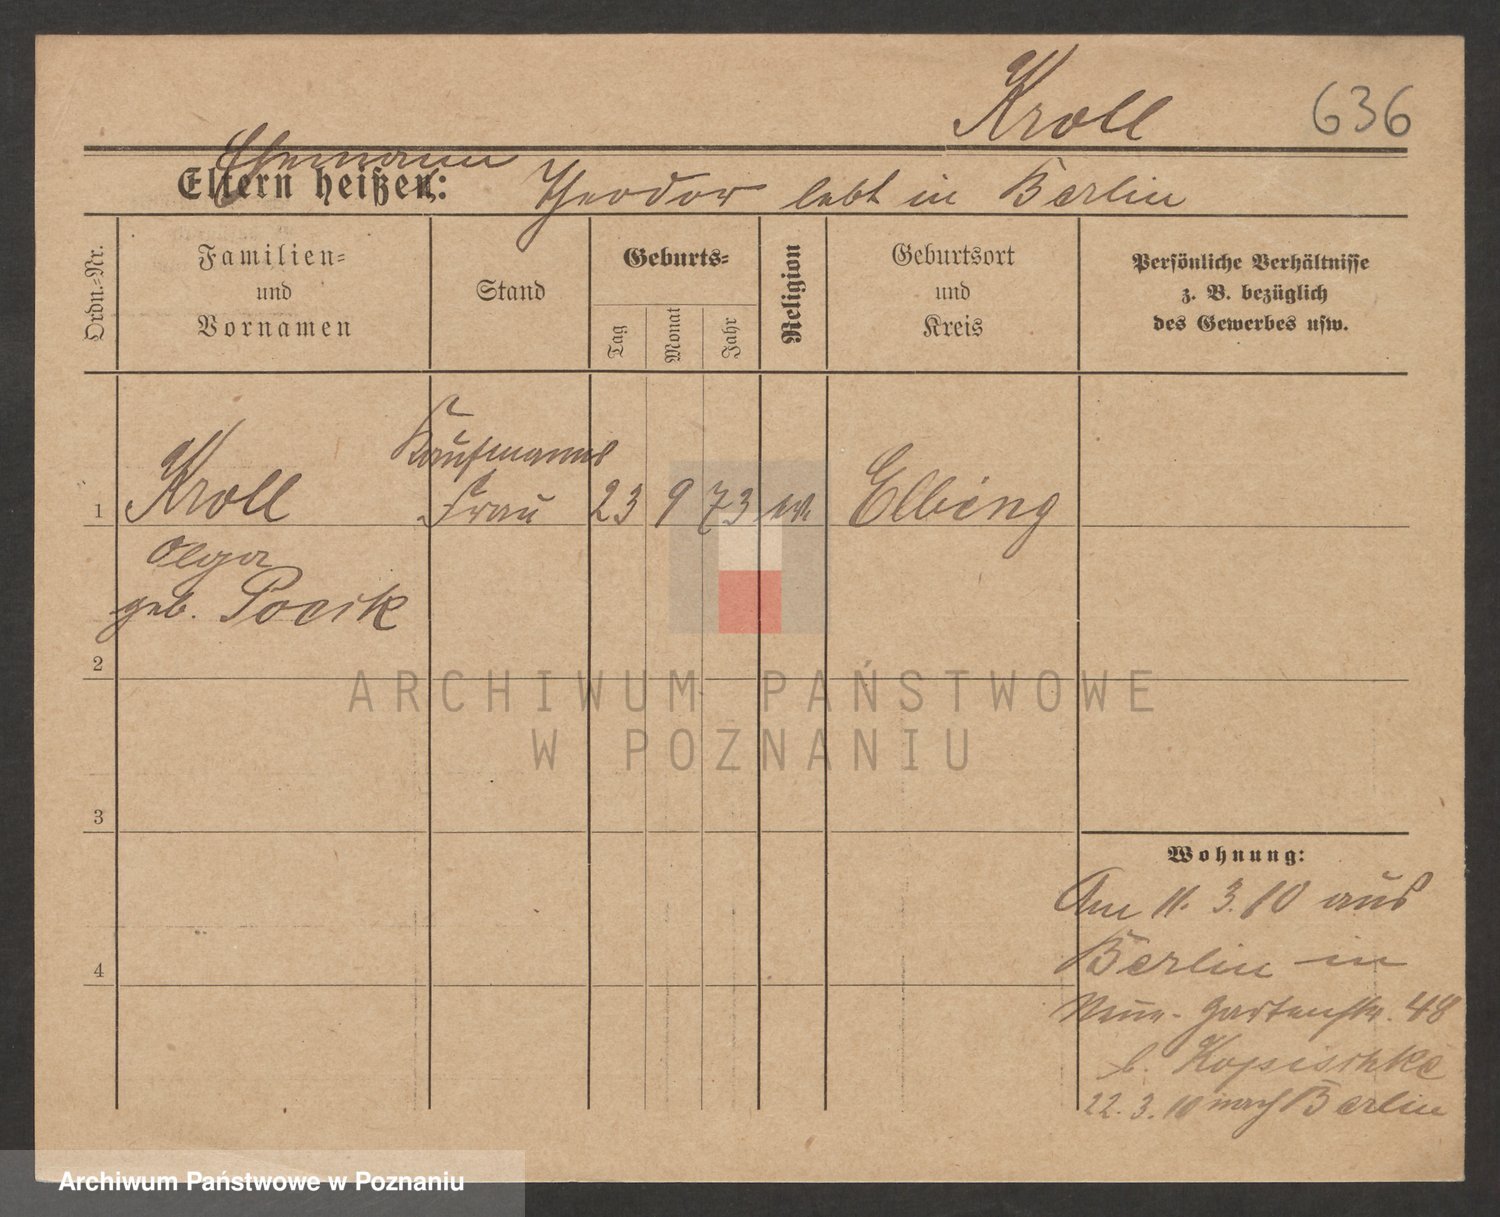 Kroll 636
Ehemann
Eltern heißen: Theodor lebt in Berlin
Ordn.-Nr.
Familien=
und
Vornamen
Stand
Geburts=
Tag
Monat
Jahr
Religion
Geburtsort
und
Kreis
Persönliche Verhältnisse
z. B. bezüglich
des Gewerbes usw.
Kaufmanns
1 Kroll Frau 23 9 73 ev. Elbing
Olga
geb. Pocsik
2
3
4
Wohnung:
Am 11. 3. 10 aus
Berlin in
Neue- Gartenstr. 48
b. Kopischke
22. 3. 10 nach Berlin
ARCHIWUM PAŃSTWOWE
W POZNANIU
Archiwum Państwowe w Poznaniu